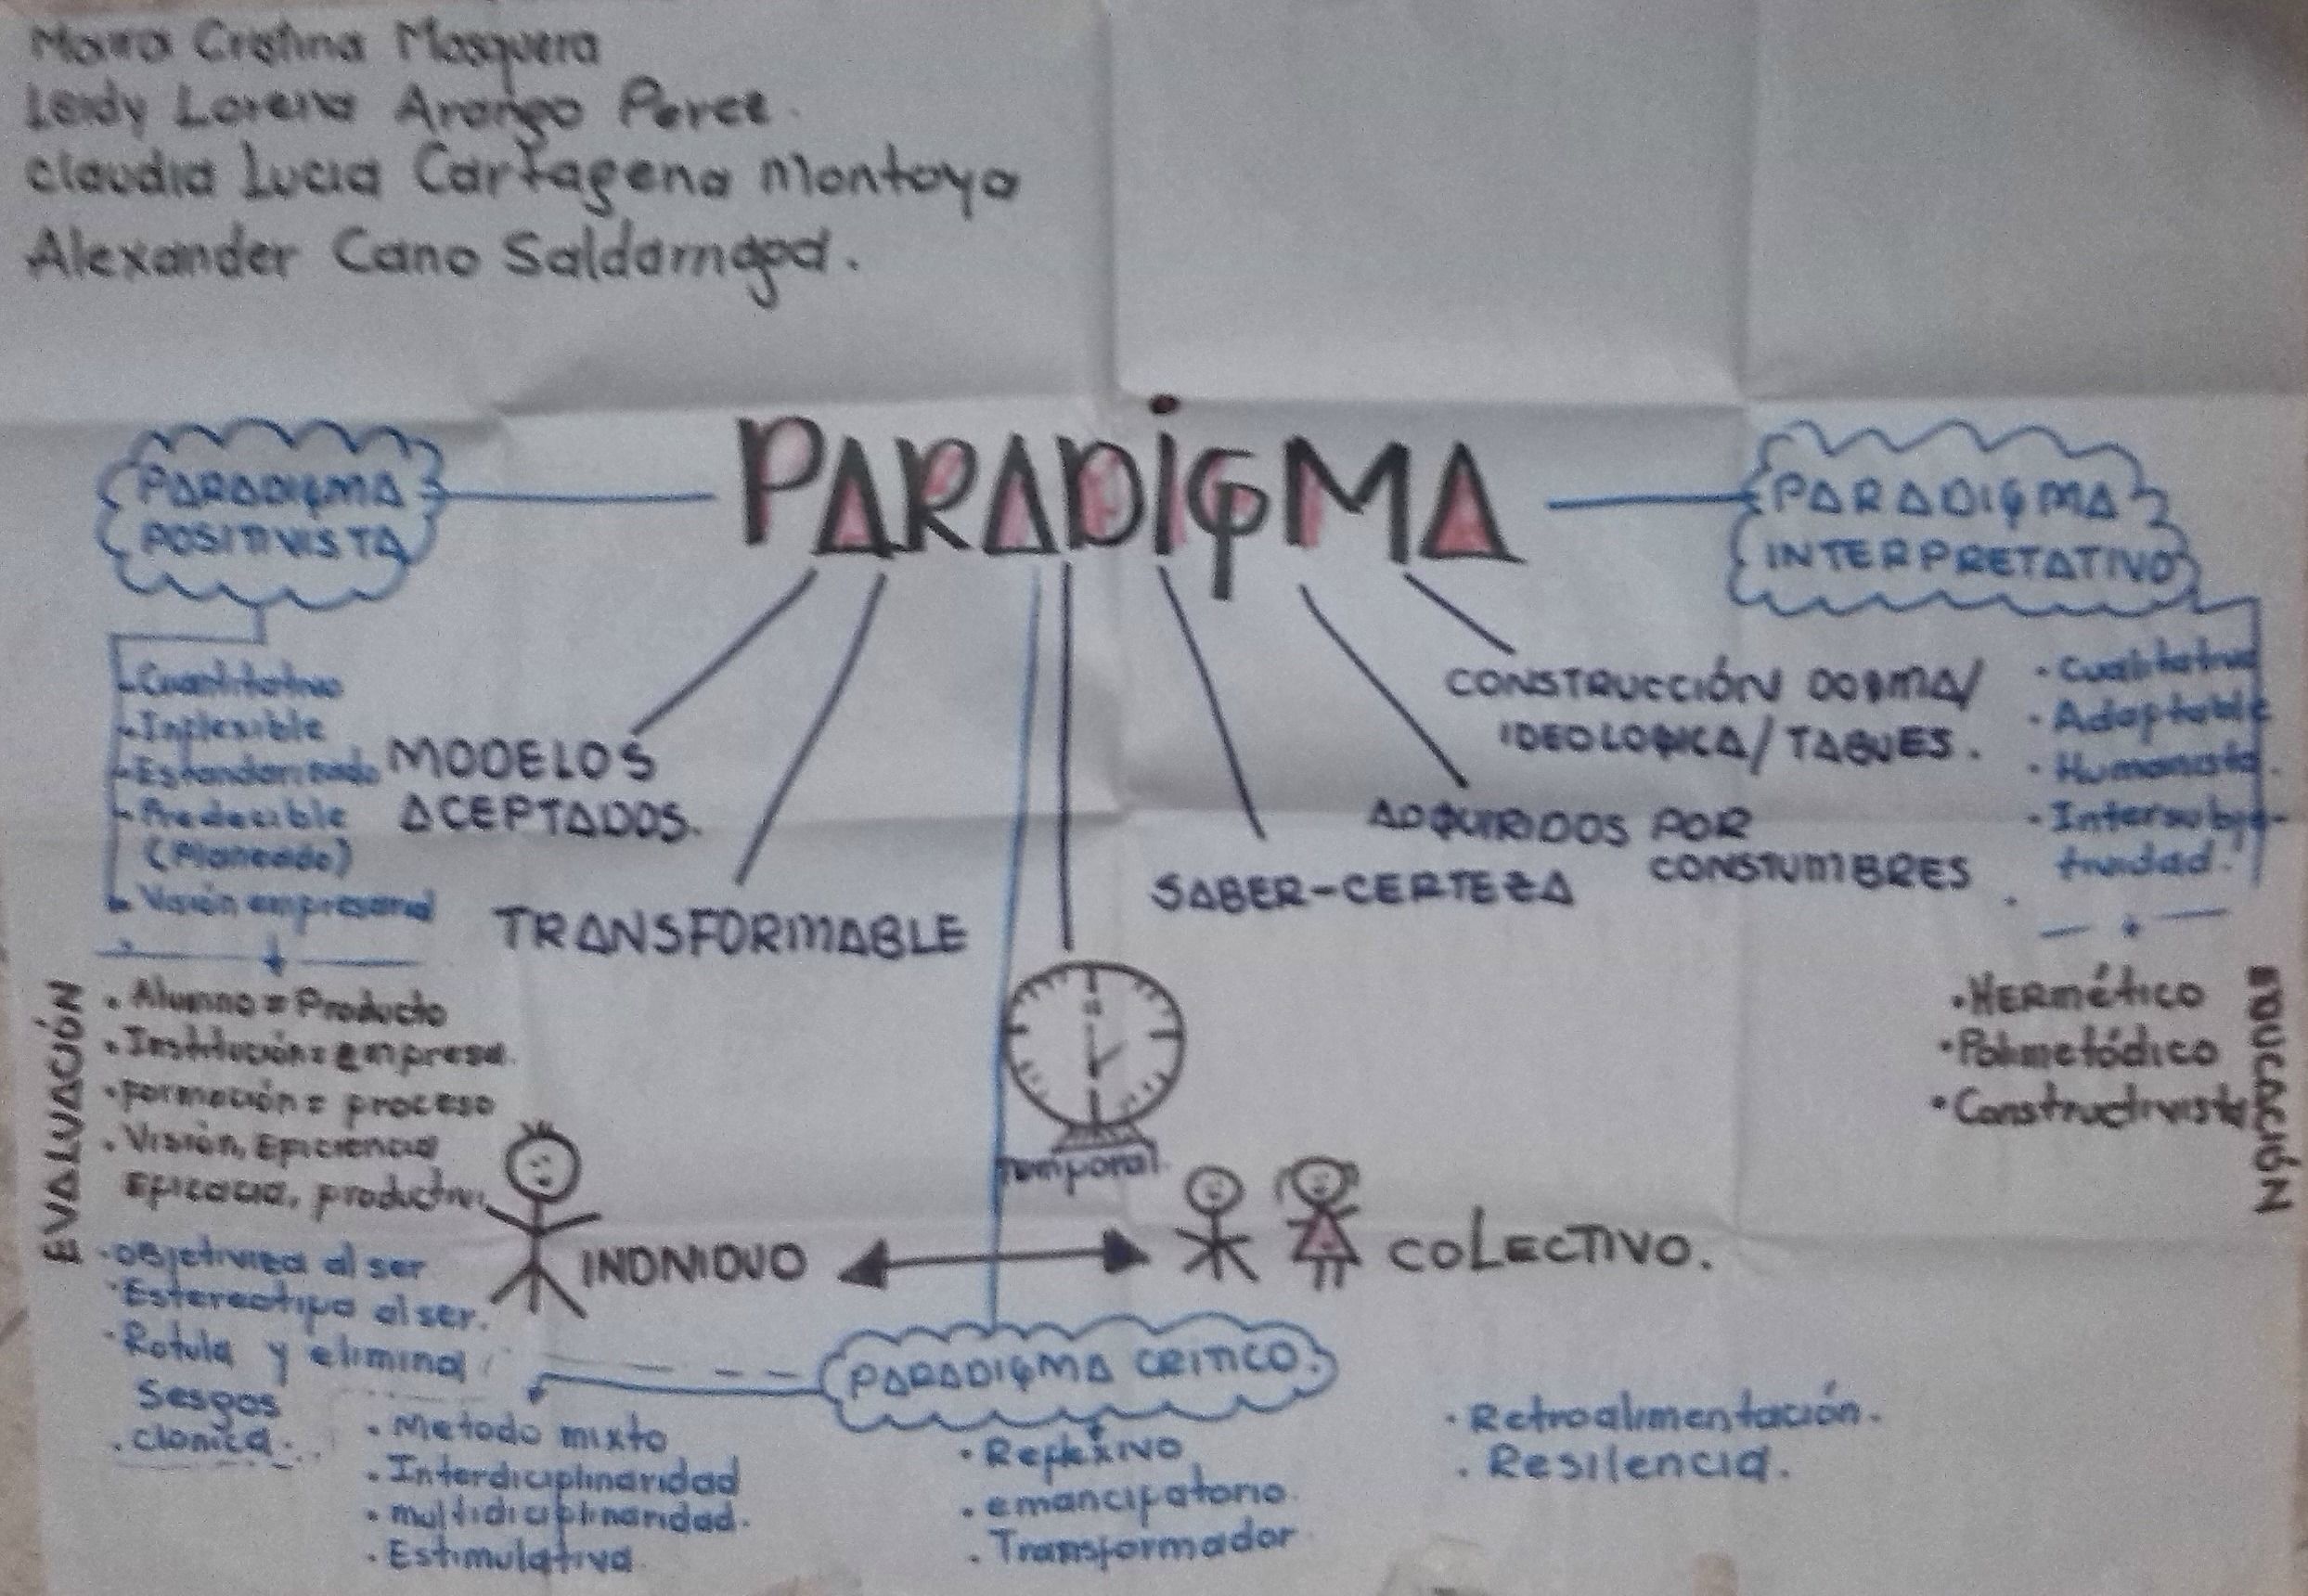 Maira Cristina Mosquera
Leidy Lorena Arango Perez.
Claudia Lucia Cartagena Montoya
Alexander Cano Saldarriaga.
PARADIGMA
PARADIGMA
POSITIVISTA
- Cuantitativo
- Inflexible
- Estandarizado
- Predecible
(Planeado)
- Visión empresarial
EVALUACIÓN
. Alumno = Producto
. Institución = empresa.
. formación = proceso
. Visión, Eficiencia
Eficacia, productivi
. Objetiviza al ser
. Estereotipa al ser.
. Rotula y elimina
Sesgos
. clonica.
MODELOS
ACEPTADOS.
TRANSFORMABLE
Temporal.
SABER-CERTEZA
ADQUIRIDOS POR
CONSTUMBRES
CONSTRUCCIÓN DOGMA/
IDEOLOGICA/TABUES.
PARADIGMA
INTERPRETATIVO
. Cualitativo
. Adaptable
. Humanista.
. Intersubje-
tividad.
EDUCACIÓN
. HERMético
. Polimetódico
. Constructivista
INDIVIDUO
COLECTIVO.
PARADIGMA CRITICO.
. Metodo mixto
. Interdiciplinaridad
. multidiciplinaridad.
. Estimulativa.
. Reflexivo
. emancipatorio.
. Transformador.
. Retroalimentación.
. Resilencia.